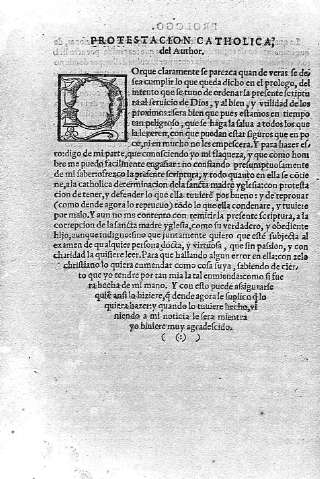 PROTESTACION CATHOLICA,
del Author.
POrque claramente se parezca quan de veras se de
sea cumplir lo que queda dicho en el prologo, del
intento que se tuuo de ordenar la presente scriptu
ra al seruicio de Dios, y al bien, y vtilidad de los
proximos: sera bien que pues estamos en tiempo
tan peligroso, que se haga la salua a todos los que
la leyeren, con que puedan estar siguros que en po
co, ni en mucho no les empescera. Y para hazer es
to: digo de mi parte, que conosciendo mi flaqueza, y que como hom
bre me puedo facilmente engañar: no confiando presumptuosamente
de mi saber ofrezco la presente scriptura, y todo quanto en ella se cõtie
ne, a la catholica determinacion de la sancta madre yglesia: con protesta
cion de tener, y defender lo que ella tuuiere por bueno: y de reprouar
(como dende agora lo repruuo) todo lo que ella condenare, y tuuiere
por malo. Y aun no me contento con remitir la presente scriptura, a la
correpcion de la sancta madre yglesia, como su verdadero, y obediente
hijo, aunque indigno: sino que juntamente quiero que esté subjecta al
examen de qualquier persona docta, y virtuosa, que sin pasion, y con
charidad la quisiere leer. Para que hallando algun error en ella: con zelo
christiano lo quiera emendar como cosa suya, sabiendo de cier-
to que yo tendre por tan mia la tal emienda: como si fue
ra hecha de mi mano. Y con esto puede assigurarse
quiẽ ansi lo hiziere, q̃ dende agora le suplico q̃ lo
quiera hazer: y quando lo tuuiere hecho, vi
niendo a mi noticia le sera mientra
yo biuiere muy agradescido.
( :) )